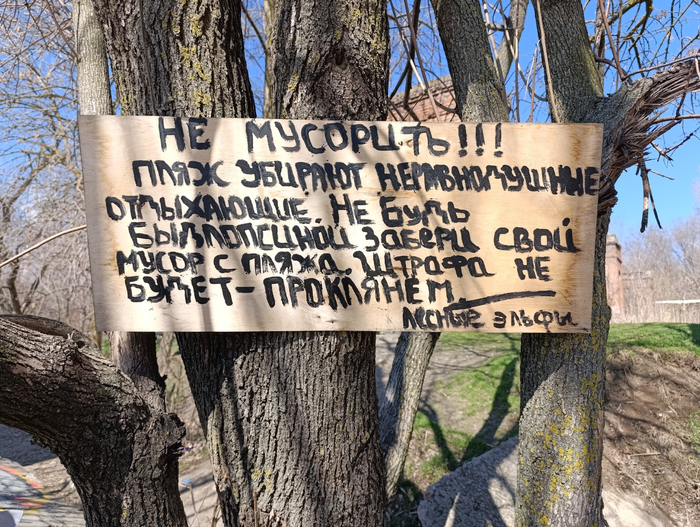 НЕ МУСОРИТЬ!!!
ПЛЯЖ УБИРАЮТ НЕРАВНОДУШНЫЕ
ОТДЫХАЮЩИЕ. НЕ БУДЬ
БЫДЛОПСИНОЙ ЗАБЕРИ СВОЙ
МУСОР С ПЛЯЖА. ШТРАФА НЕ
БУДЕТ - ПРОКЛЯНЕМ
ЛЕСНЫЕ ЭЛЬФЫ